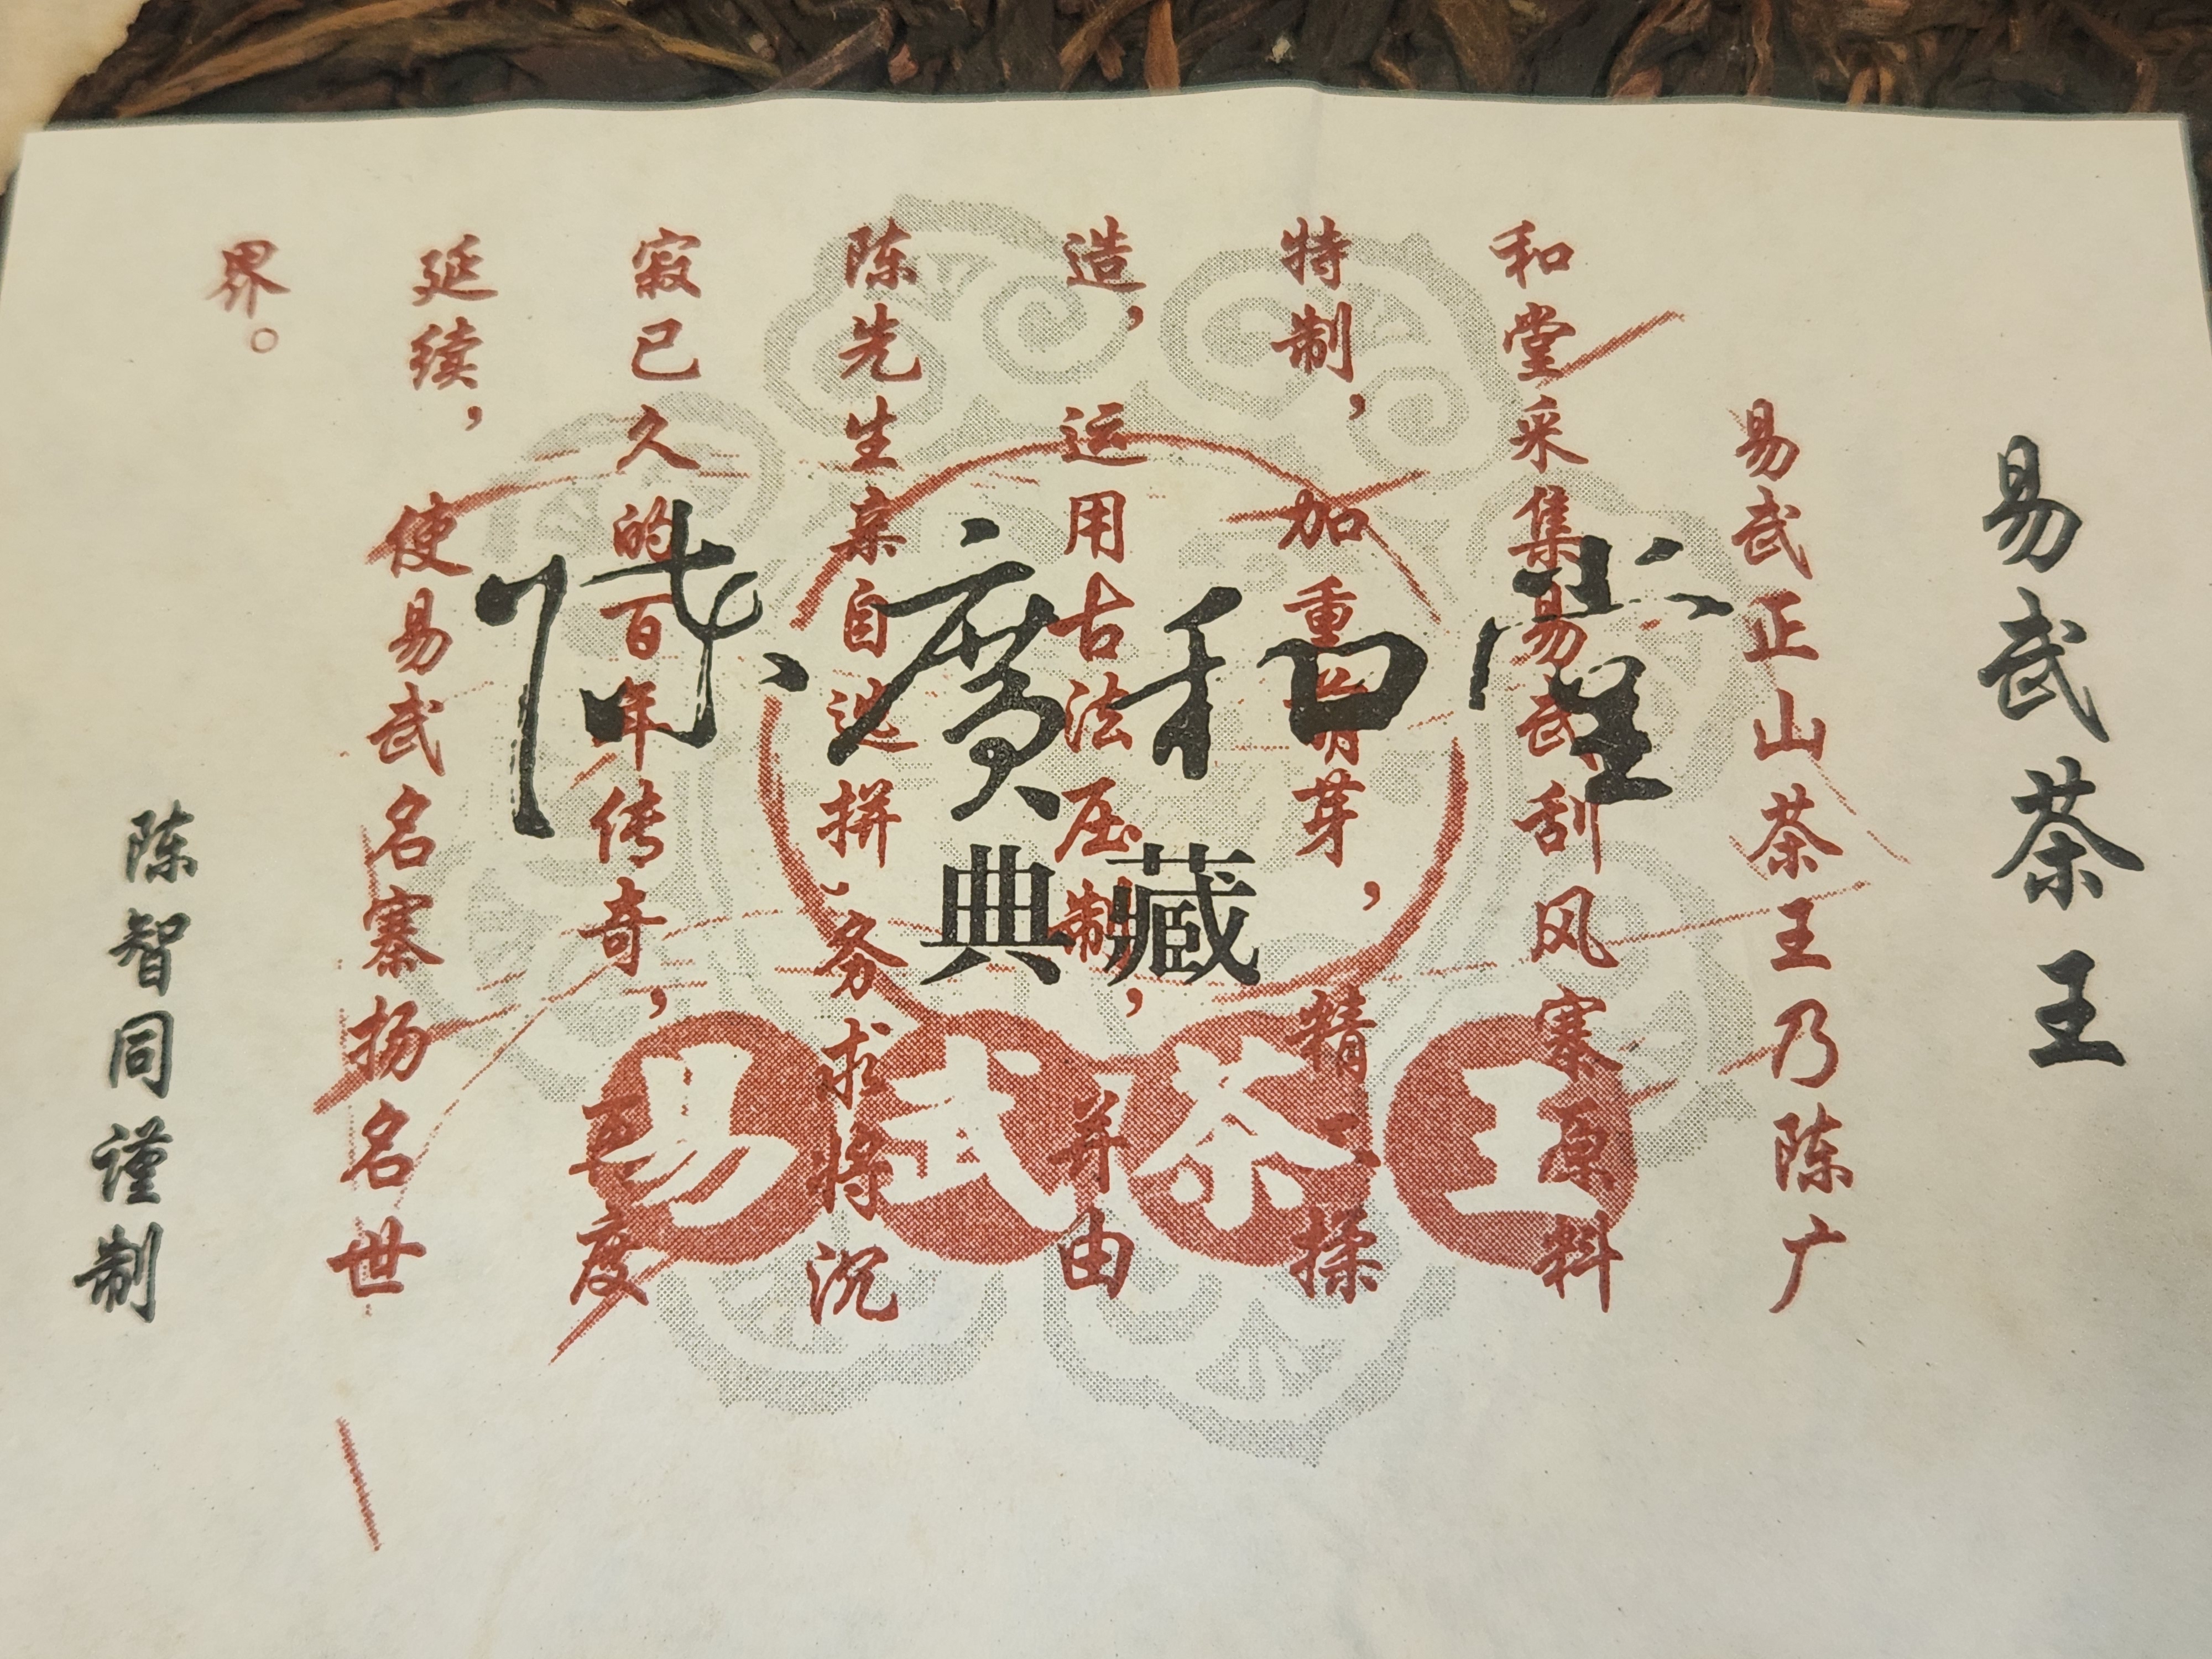 易武茶王
易武正山茶王乃陈广
和堂采集易武刮风寨原料
特制，加重萌芽，精工揉
造，运用古法压制，并由
陈先生亲自选拼、务求将沉
寂已久的百年传奇，再度
延续，使易武名寨扬名世
界。
陈智同谨制
陳廣和堂
典藏
易武茶王